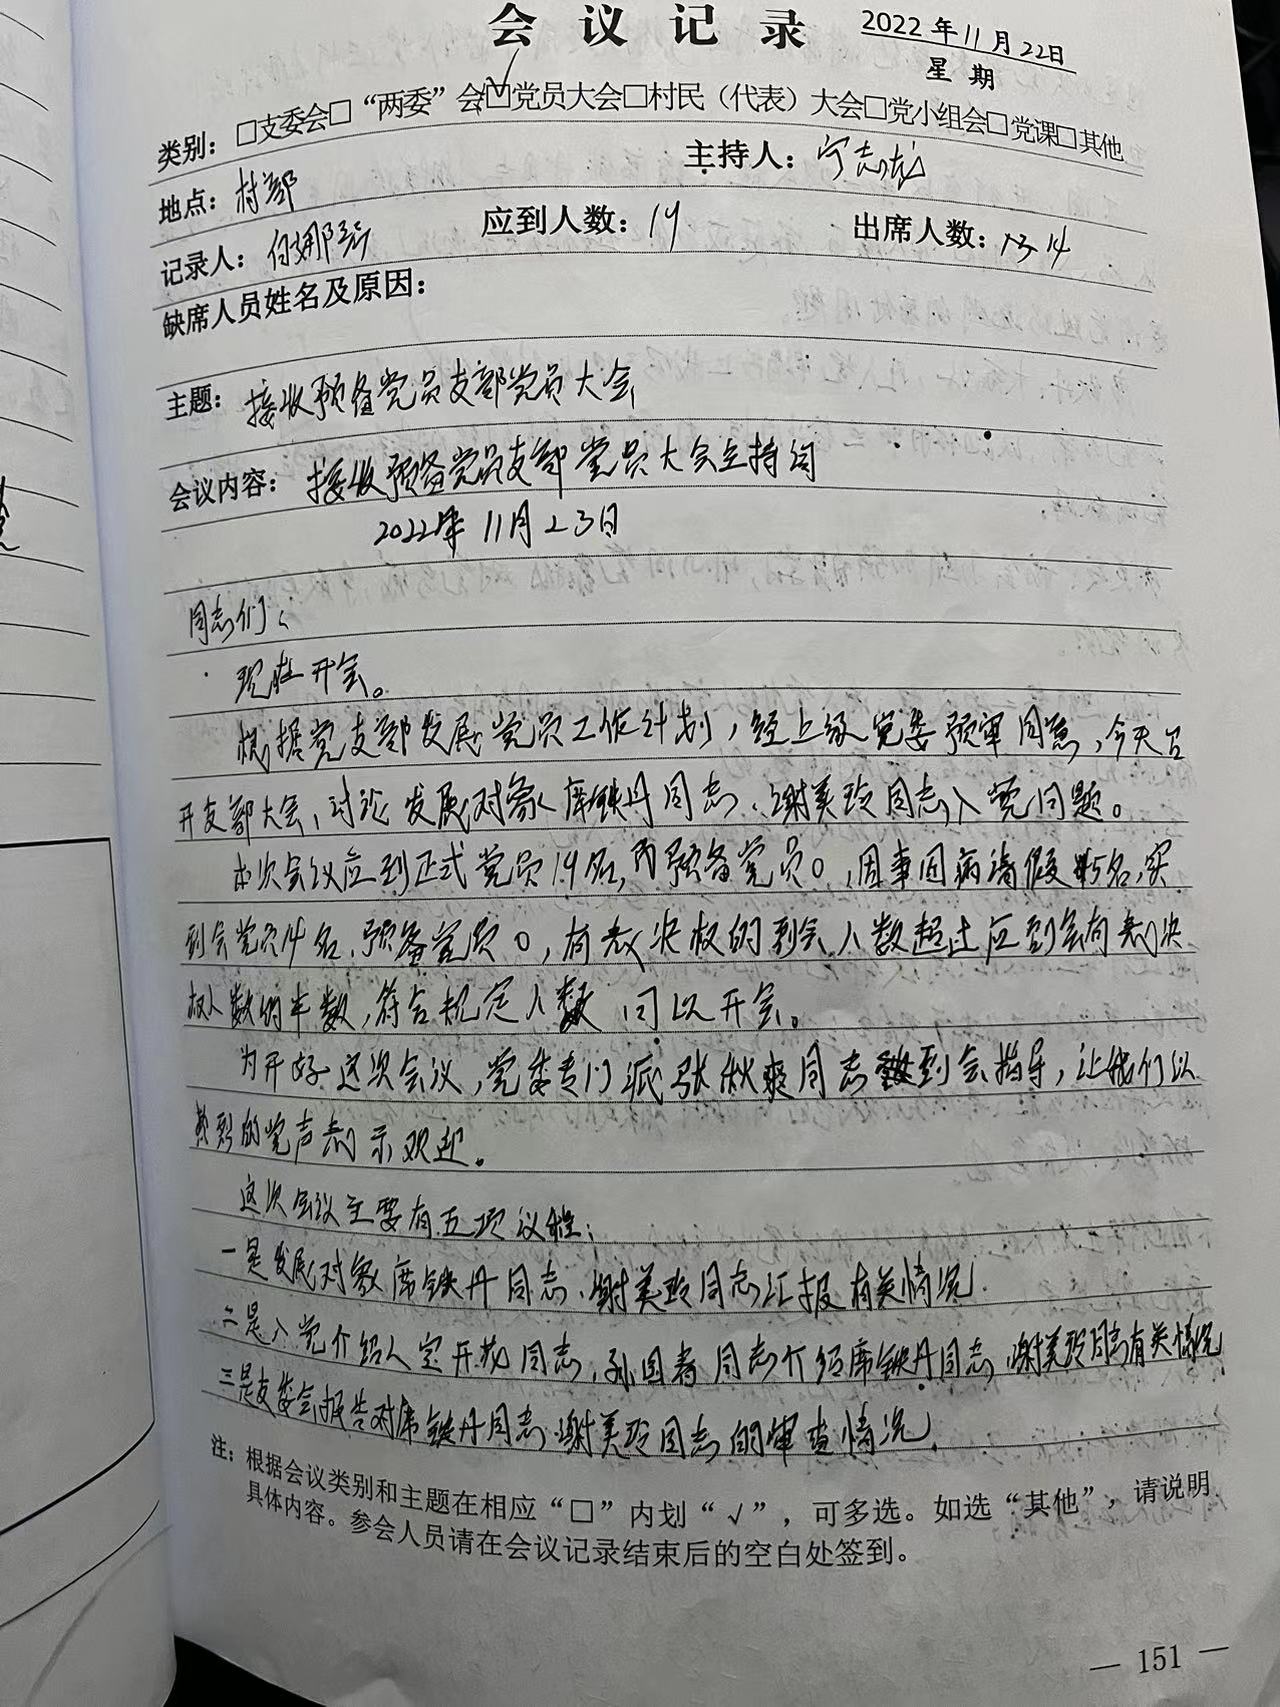 会议记录
2022年11月22日
星期
类别：□支委会□“两委”会☑党员大会□村民（代表）大会□党小组会□党课□其他
地点：村部 主持人：宁志
记录人：白娜 应到人数：19 出席人数：14
缺席人员姓名及原因：
主题：接收预备党员支部党员大会
会议内容：接收预备党员支部党员大会主持词
2022年11月23日
同志们：
现在开会。
根据党支部发展党员工作计划，经上级党委预审同意，今天召
开支部大会，讨论发展对象席铁丹同志、谢美玲同志入党问题。
本次会议应到正式党员19名，预备党员0，因事因病请假5名，实
到会党员14名，预备党员0，有表决权的到会人数超过应到会有表决
权人数的半数，符合规定人数 可以开会。
为开好这次会议，党委专门派张秋爽同志到会指导，让我们以
热烈的掌声表示欢迎。
这次会议主要有五项议程：
一是发展对象席铁丹同志、谢美玲同志汇报有关情况.
二是入党介绍人同志、孙国春同志介绍席铁丹同志、谢美玲同志有关情况
三是支委会报告对席铁丹同志、谢美玲同志的审查情况.
注：根据会议类别和主题在相应“□”内划“√”，可多选。如选“其他”，请说明
具体内容。参会人员请在会议记录结束后的空白处签到。
— 151 —